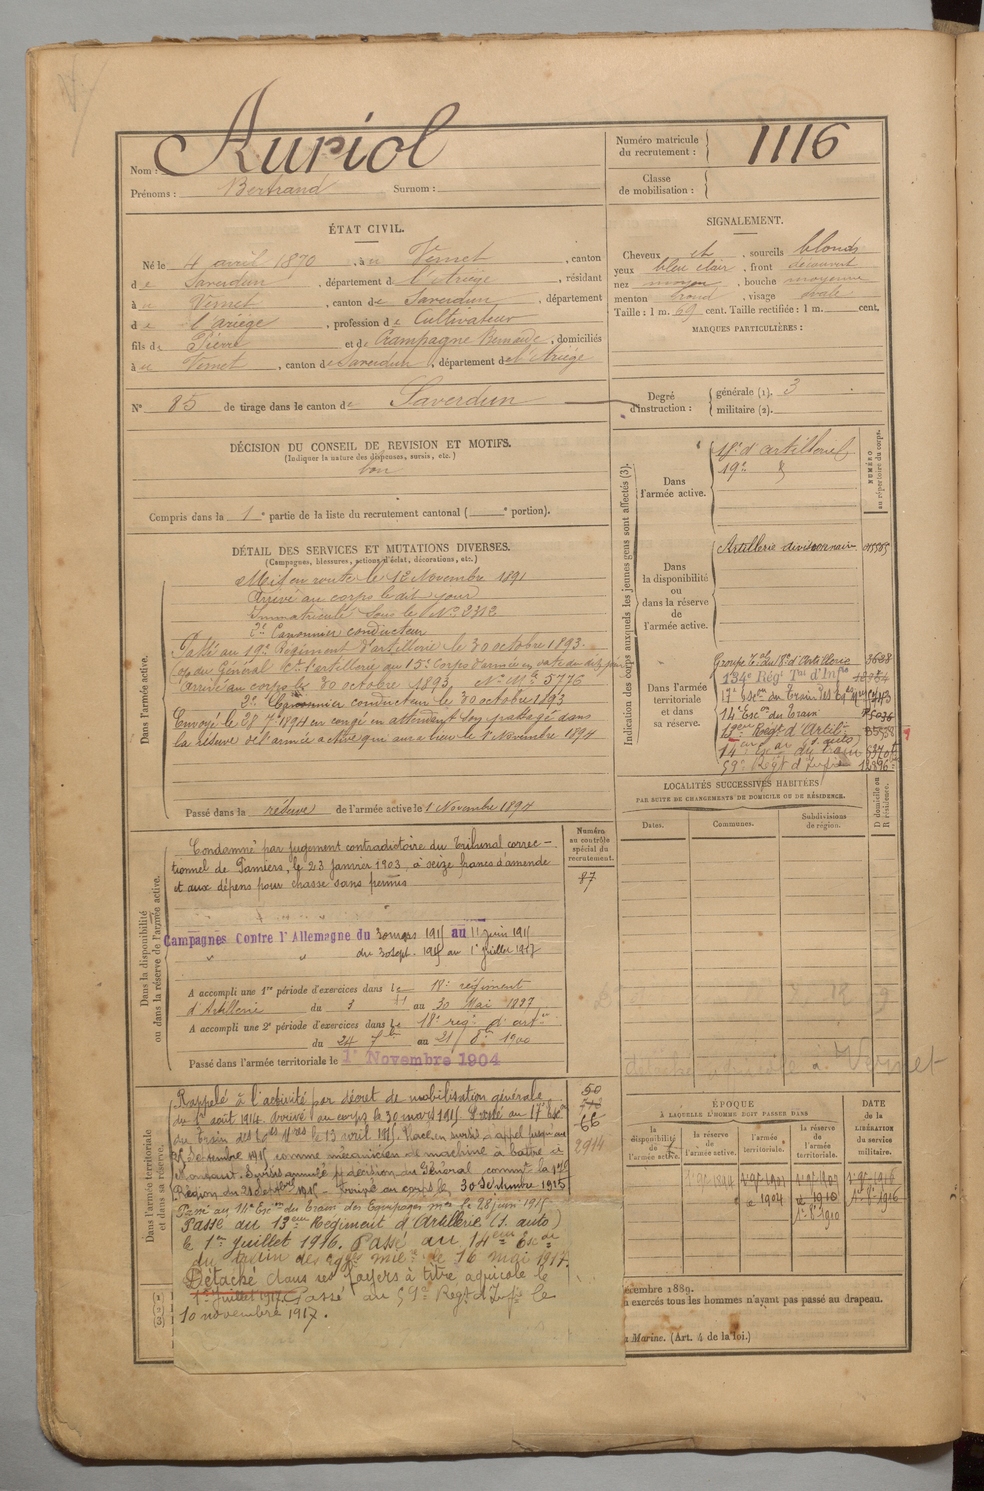 Nom : Auriol
Prénoms : Bertrand Surnom :
Numéro matricule du recrutement : 1116
Classe de mobilisation :
ÉTAT CIVIL.
Né le 4 avril 1870, à u Vernet, canton
d e Saverdun, département de l'Ariège, résidant
à u Vernet, canton de Saverdun, département
d e l'Ariège, profession de Cultivateur
fils de Pierre et de Crampagne Bernade, domiciliés
à u Vernet, canton de Saverdun, département de l'Ariège
N° 85 de tirage dans le canton de Saverdun
SIGNALEMENT.
Cheveux et, sourcils blonds
yeux bleu clair, front découvert
nez moyen, bouche moyenne
menton rond, visage ovale
Taille : 1 m. 69 cent. Taille rectifiée : 1 m. cent.
MARQUES PARTICULIÈRES :
Degré d'instruction : générale (1). 3
militaire (2).
DÉCISION DU CONSEIL DE REVISION ET MOTIFS.
(Indiquer la nature des dispenses, sursis, etc.)
bon
Compris dans la 1e partie de la liste du recrutement cantonal ( e portion).
DÉTAIL DES SERVICES ET MUTATIONS DIVERSES.
(Campagnes, blessures, actions d'éclat, décorations, etc.)
Dans l'armée active.
Mis en route le 12 Novembre 1891
Arrivé au corps le dit jour
Immatriculé sous le N° 2312
2e Canonnier conducteur
Passé au 19e Régiment d'artillerie le 30 octobre 1893.
du Général Ct l'artillerie du 15e Corps d'armée en date du
Arrivé au corps le 30 octobre 1893. N° Mle 5776
2e Canonnier conducteur le 30 octobre 1893
Envoyé le 28 7bre 1894 en congé en attendant son passage dans
la réserve de l'armée active qui aura lieu le 1er Novembre 1894
Passé dans la réserve de l'armée active le 1 Novembre 1894
Indication des corps auxquels les jeunes gens sont affectés (3).
NUMÉRO au répertoire du corps.
Dans l'armée active.
18e d'artillerie
19e
Dans la disponibilité ou dans la réserve de l'armée active.
Artillerie divisionnaire
Dans l'armée territoriale et dans sa réserve.
Groupe Tal du 18e d'Artillerie
134e Régt Tal d'Infie
17e Escon du Train des Eqages
14e Escon du Train
13eme Régt d'Artil.
14eme Escon du train
59e Régt d'Infie
LOCALITÉS SUCCESSIVES HABITÉES
PAR SUITE DE CHANGEMENTS DE DOMICILE OU DE RÉSIDENCE.
Dates. Communes. Subdivisions de région. D domicile ou R résidence.
Numéro au contrôle spécial du recrutement.
87
Dans la disponibilité ou dans la réserve de l'armée active.
Condamné par jugement contradictoire du Tribunal correc-
tionnel de Pamiers, le 23 Janvier 1903, à seize francs d'amende
et aux dépens pour chasse sans permis
Campagnes Contre l'Allemagne du 30 mars 1915 au 11 juin 1915
" " du 30 sept. 1915 au 1er Juillet 1917
A accompli une 1re période d'exercices dans le 18e régiment
d'Artillerie du 3 au 30 Mai 1897
A accompli une 2e période d'exercices dans le 18e régt d'artie
du 24 7bre au 21 8bre 1900
Passé dans l'armée territoriale le 1er Novembre 1904
Dans l'armée territoriale et dans sa réserve.
Rappelé à l'activité par décret de mobilisation générale
du 1er août 1914. Arrivé au corps le 30 mars 1915. Passé au 17e Escon
du Train des Eqges Mres le 13 avril 1915. Placé en sursis d'appel jusqu'au
Septembre 1915 comme mécanicien de machine à battre à
Sursis annulé p. décision du Général commt la 17e
Région du 21 septbre 1915. Arrivé au corps le 30 Septembre 1915
Passé au 14e Escon du Train des Equipages mres le 28 juin 1915.
Passé au 13eme Régiment d'Artillerie (S. auto)
le 1er juillet 1916. Passé au 14eme Escon
du train des eqges mil. le 16 mai 1917
Détaché dans ses foyers à titre agricole le
1er juillet 1917. Passé au 59e Régt d'Infie le
10 novembre 1917.
50
66
2914
détaché agricole à Vernet
ÉPOQUE
À LAQUELLE L'HOMME DOIT PASSER DANS
la disponibilité de l'armée active. la réserve de l'armée active. l'armée territoriale. la réserve de l'armée territoriale.
DATE de la LIBÉRATION du service militaire.
décembre 1889.
exercés tous les hommes n'ayant pas passé au drapeau.
Marine. (Art. 4 de la loi.)